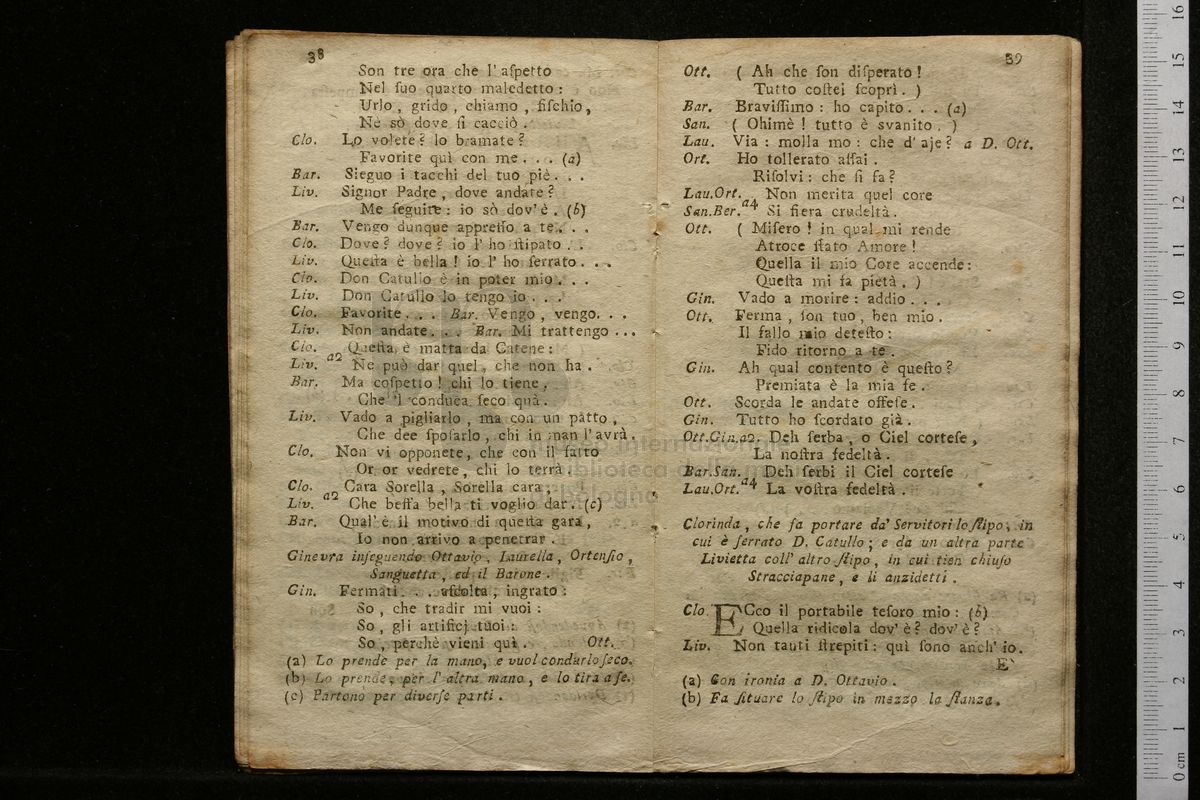 38
Son tre ora che l' aſpetto
Nel ſuo quarto maledetto :
Urlo , grido , chiamo , fiſchio ,
Nè sò dove ſi cacciò .
Clo. Lo volete ? lo bramate ?
Favorite quì con me . . . (a)
Bar. Sieguo i tacchi del tuo piè . . .
Liv. Signor Padre , dove andate ?
Me ſeguite : io sò dov' è . (b)
Bar. Vengo dunque appreſſo a te . . .
Clo. Dove ? dove ? io l' ho ſtipato . .
Liv. Queſta è bella ! io l' ho ſerrato . . .
Clo. Don Catullo è in poter mio . . .
Liv. Don Catullo lo tengo io . . .
Clo. Favorite . . . Bar. Vengo , vengo . . .
Liv. Non andate . . . Bar. Mi trattengo . . .
Clo. Queſta è matta da Catene :
Liv. a2 Ne può dar quel , che non ha .
Bar. Ma coſpetto ! chi lo tiene ,
Che 'l conduca ſeco quà .
Liv. Vado a pigliarlo , ma con un patto ,
Che dee ſpoſarlo , chi in man l' avrà .
Clo. Non vi opponete , che con il fatto
Or or vedrete , chi lo terrà .
Clo. Cara Sorella , Sorella cara ,
Liv. a2 Che beffa bella ti voglio dar . (c)
Bar. Qual' è il motivo di queſta gara ,
Io non arrivo a penetrar .
Ginevra inſeguendo Ottavio , Laurella , Ortenſio ,
Sanguetta , ed il Barone .
Gin. Fermati . . . aſcolta , ingrato :
So , che tradir mi vuoi :
So , gli artificj tuoi :
So , perchè vieni quì . Ott.
(a) Lo prende per la mano, e vuol condurlo ſeco.
(b) Lo prende, per l' altra mano , e lo tira a ſe.
(c) Partono per diverſe parti .
39
Ott. ( Ah che ſon diſperato !
Tutto coſtei ſcoprì . )
Bar. Braviſſimo : ho capito . . . (a)
San. ( Ohimè ! tutto è svanito . )
Lau. Via : molla mo : che d' aje ? a D. Ott.
Ort. Ho tollerato aſſai .
Riſolvi : che ſi fa ?
Lau.Ort. Non merita quel core
San.Ber. a4 Sì fiera crudeltà .
Ott. ( Miſero ! in qual mi rende
Atroce ſtato Amore !
Quella il mio Core accende :
Queſta mi fa pietà . )
Gin. Vado a morire : addio . . .
Ott. Ferma , ſon tuo , ben mio .
Il fallo mio deteſto :
Fido ritorno a te .
Gin. Ah qual contento è queſto ?
Premiata è la mia fe .
Ott. Scorda le andate offeſe .
Gin. Tutto ho ſcordato già .
Ott.Gin.a2. Deh ſerba , o Ciel corteſe ,
La noſtra fedeltà .
Bar.San. Deh ſerbi il Ciel corteſe
Lau.Ort. a4 La voſtra fedeltà .
Clorinda , che fa portare da' Servitori lo ſtipo , in
cui è ſerrato D. Catullo ; e da un altra parte
Livietta coll' altro ſtipo , in cui tien chiuſo
Stracciapane , e li anzidetti .
Clo. ECco il portabile teſoro mio : (b)
Quella ridicola dov' è ? dov' è ?
Liv. Non tanti ſtrepiti : quì ſono anch' io .
E`
(a) Con ironia a D. Ottavio .
(b) Fa ſituare lo ſtipo in mezzo la ſtanza .